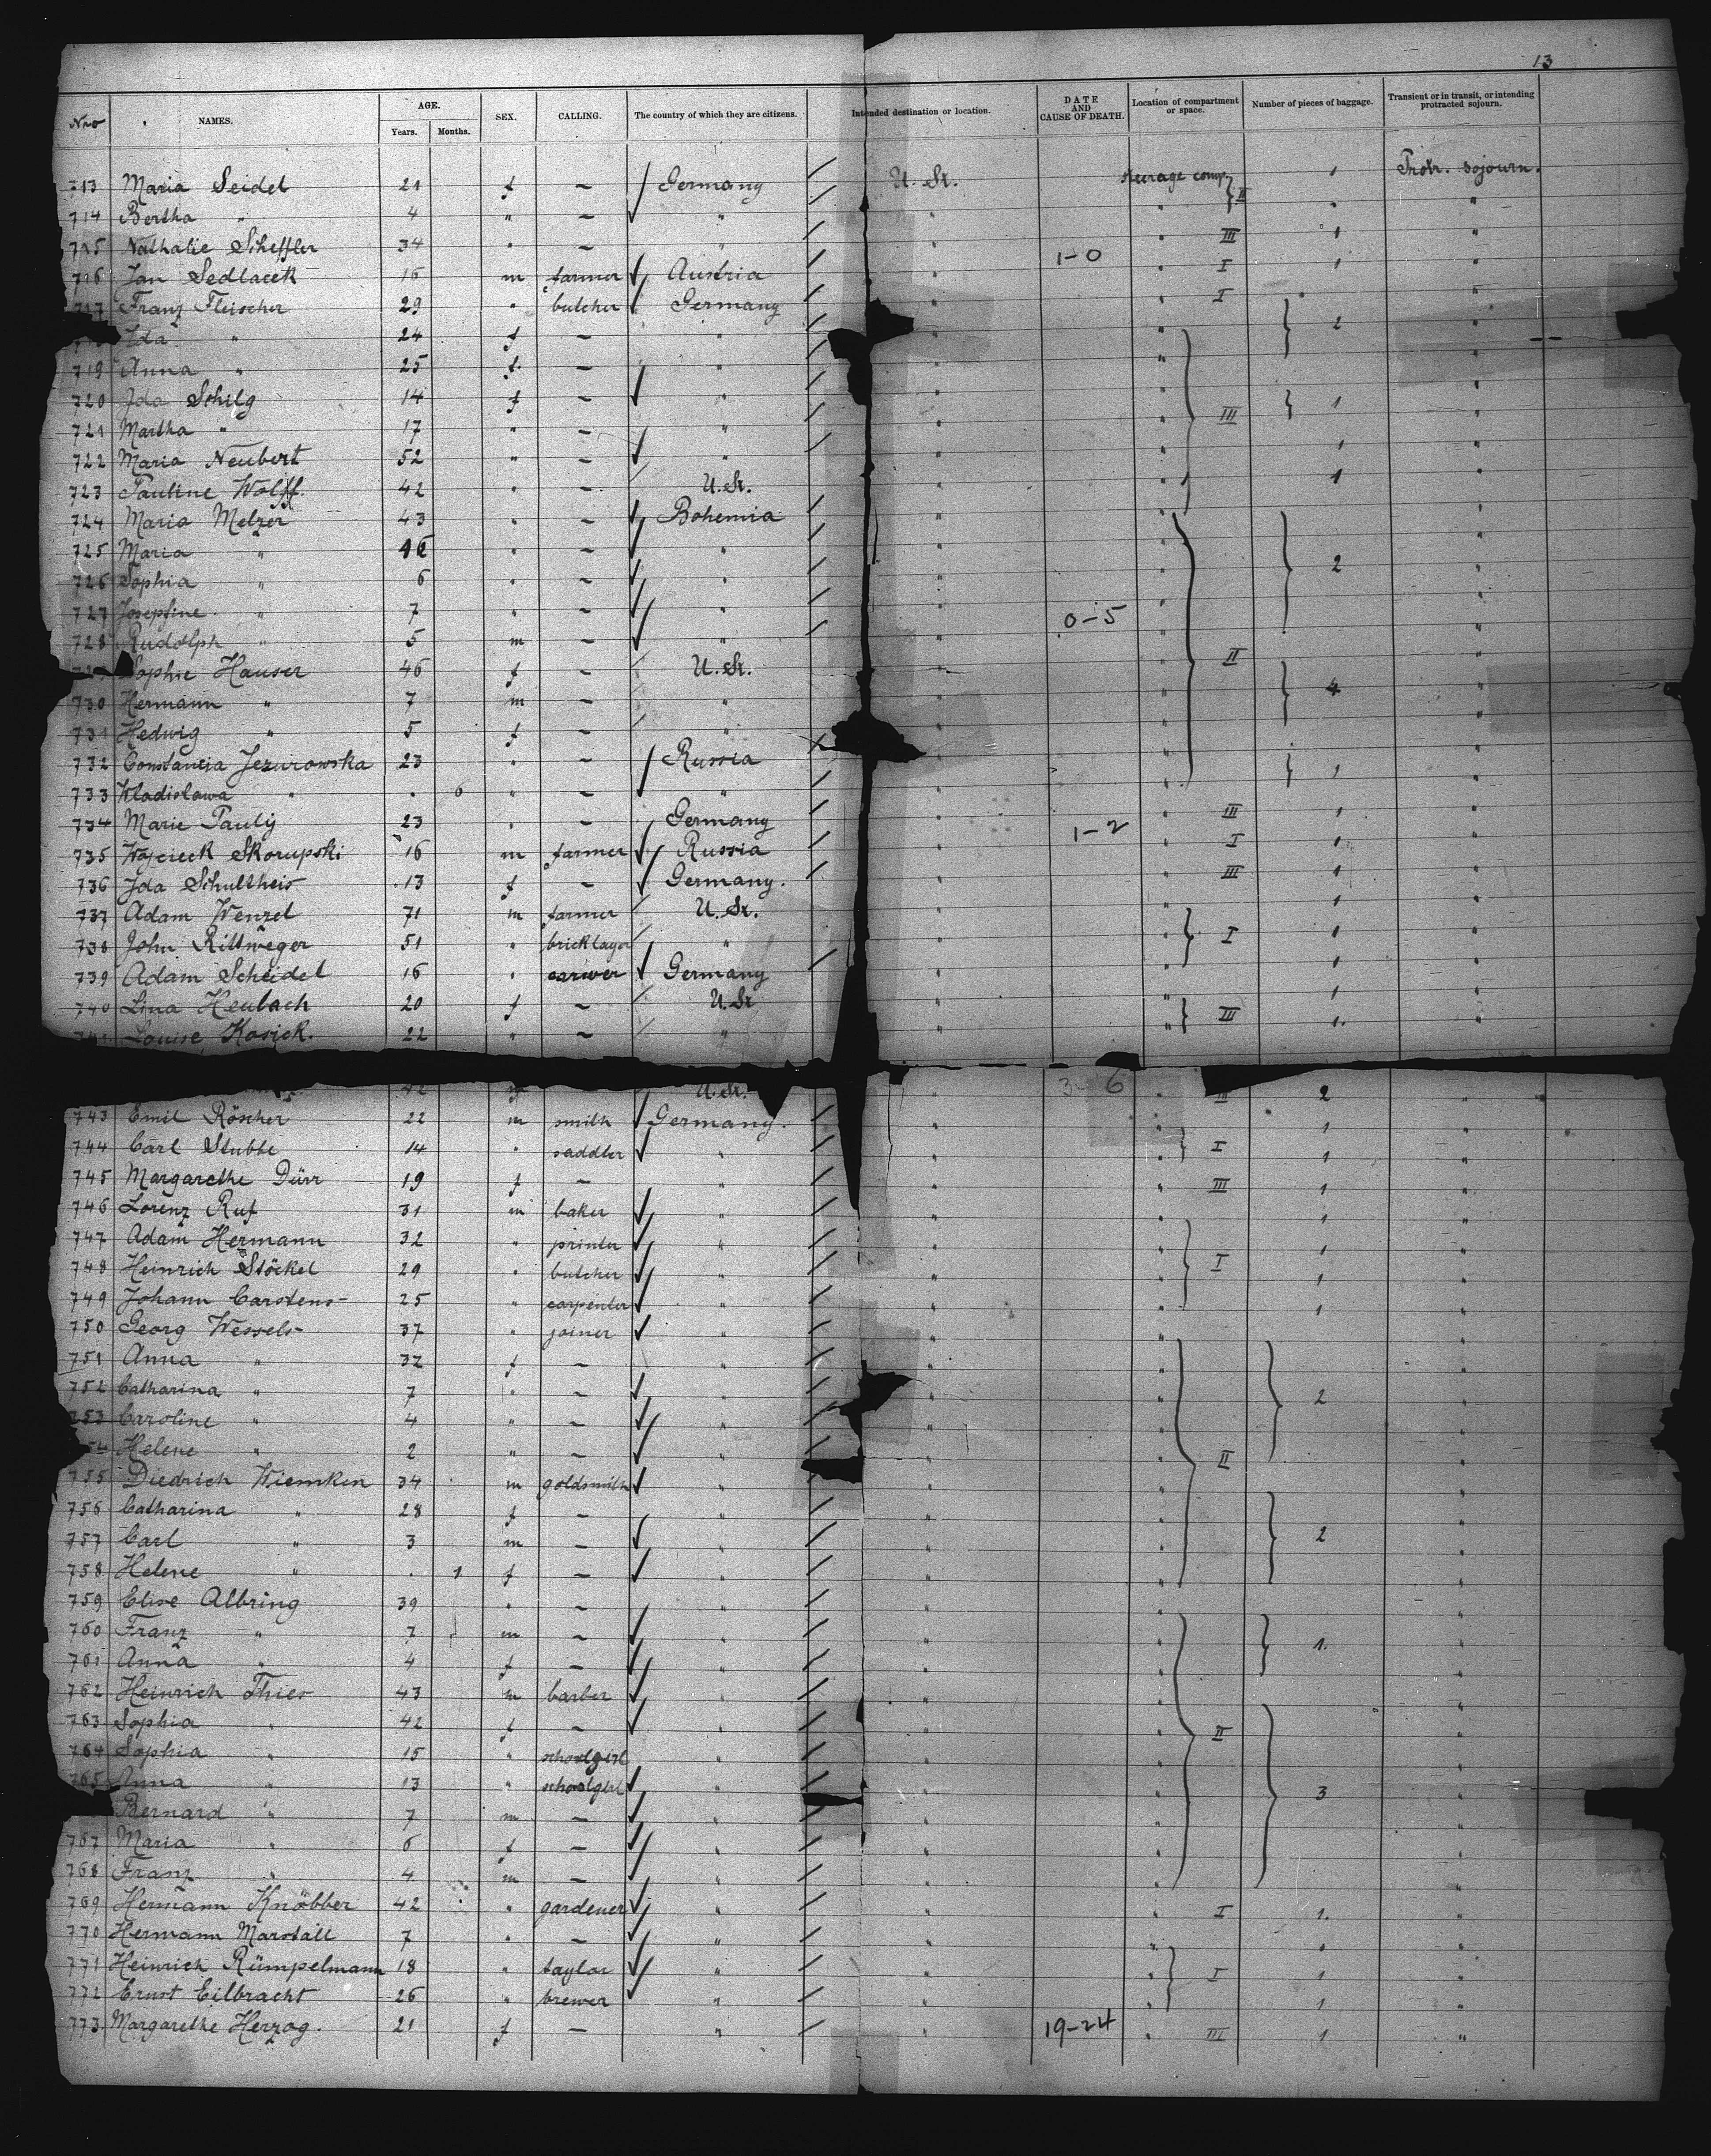 13
Nro NAMES. AGE. Years. Months. SEX. CALLING. The country of which they are citizens. Intended destination or location. DATE AND CAUSE OF DEATH. Location of compartment or space. Number of pieces of baggage. Transient or in transit, or intending protracted sojourn.
713 Maria Seidel 21 f — Germany U. St. steerage comp. II 1 Protr. sojourn.
714 Bertha " 4 " — " " " " "
715 Nathalie Scheffler 34 " — " " " III 1 "
716 Jan Sedlacek 16 m farmer Austria " 1-0 " I 1 "
717 Franz Fleischer 29 " butcher Germany " " I "
Ida " 24 f — " " " 2 "
719 Anna " 25 f. — " " " "
720 Ida Schilg 14 f — " " " III 1 "
721 Martha " 17 " — " " " "
722 Maria Neubert 52 " — " " " 1 "
723 Pauline Wolff. 42 " — U. St. " " 1 "
724 Maria Melzer 43 " — Bohemia " " "
725 Maria " 16 " — " " " "
726 Sophia " 6 " — " " " 2 "
727 Josefine " 7 " — " " " "
728 Rudolph " 5 m — " " 0-5 " "
Sophie Hauser 46 f — U. St. " " II "
730 Hermann " 7 m — " " " 4 "
731 Hedwig " 5 f — " " "
732 Constancia Jezurowska 23 " — Russia " " 1 "
733 Wladislawa " . 6 " — " " " "
734 Marie Pauly 23 " — Germany " " III 1 "
735 Wojcieck Skorupski 16 m farmer Russia " 1-2 " I 1 "
736 Ida Schultheis 13 f — Germany. " " III 1 "
737 Adam Wenzel 71 m farmer U. St. " " 1 "
738 John Rittweger 51 " bricklayer " " " I 1 "
739 Adam Scheidel 16 " carver Germany " " 1 "
740 Lina Heubach 20 f — U. St " " 1 "
Louise Kosick. 22 " — " " " III 1. "
42 U. St. " 3-6 " III 2 "
743 Emil Röscher 22 m smith Germany. " " 1 "
744 Carl Stubbe 14 " saddler " " " I 1 "
745 Margarethe Dürr 19 f — " " " III 1 "
746 Lorenz Ruf 31 m baker " " " 1 "
747 Adam Hermann 32 " printer " " " 1 "
748 Heinrich Stöckel 29 " butcher " " " I 1 "
749 Johann Carstens 25 " carpenter " " " 1 "
750 Georg Wessels 37 " joiner " " " "
751 Anna " 32 f — " " " "
752 Catharina " 7 " — " " " 2 "
753 Caroline " 4 " — " " " "
54 Helene " 2 " — " " " II "
755 Diedrich Wiemken 34 m goldsmith " " " "
756 Catharina " 28 f — " " " "
757 Carl " 3 m — " " " 2 "
758 Helene " . 1 f — " " " "
759 Elise Albring 39 " — " " " "
760 Franz " 7 m — " " " 1. "
761 Anna " 4 f — " " " "
762 Heinrich Thies 43 m barber " " " "
763 Sophia " 42 f — " " " II "
764 Sophia " 15 " schoolgirl " " " "
765 Anna " 13 " schoolgirl " " " 3 "
Bernard " 7 m — " " " "
767 Maria " 6 f — " " " "
768 Franz " 4 m — " " " "
769 Hermann Knöbber 42 " gardener " " " I 1. "
770 Hermann Marstall 7 " — " " " "
771 Heinrich Rümpelmann 18 " taylor " " " I 1 "
772 Ernst Eilbracht 26 " brewer " " " 1 "
773. Margarethe Herzog. 21 f — " " 19-24 " III 1 "